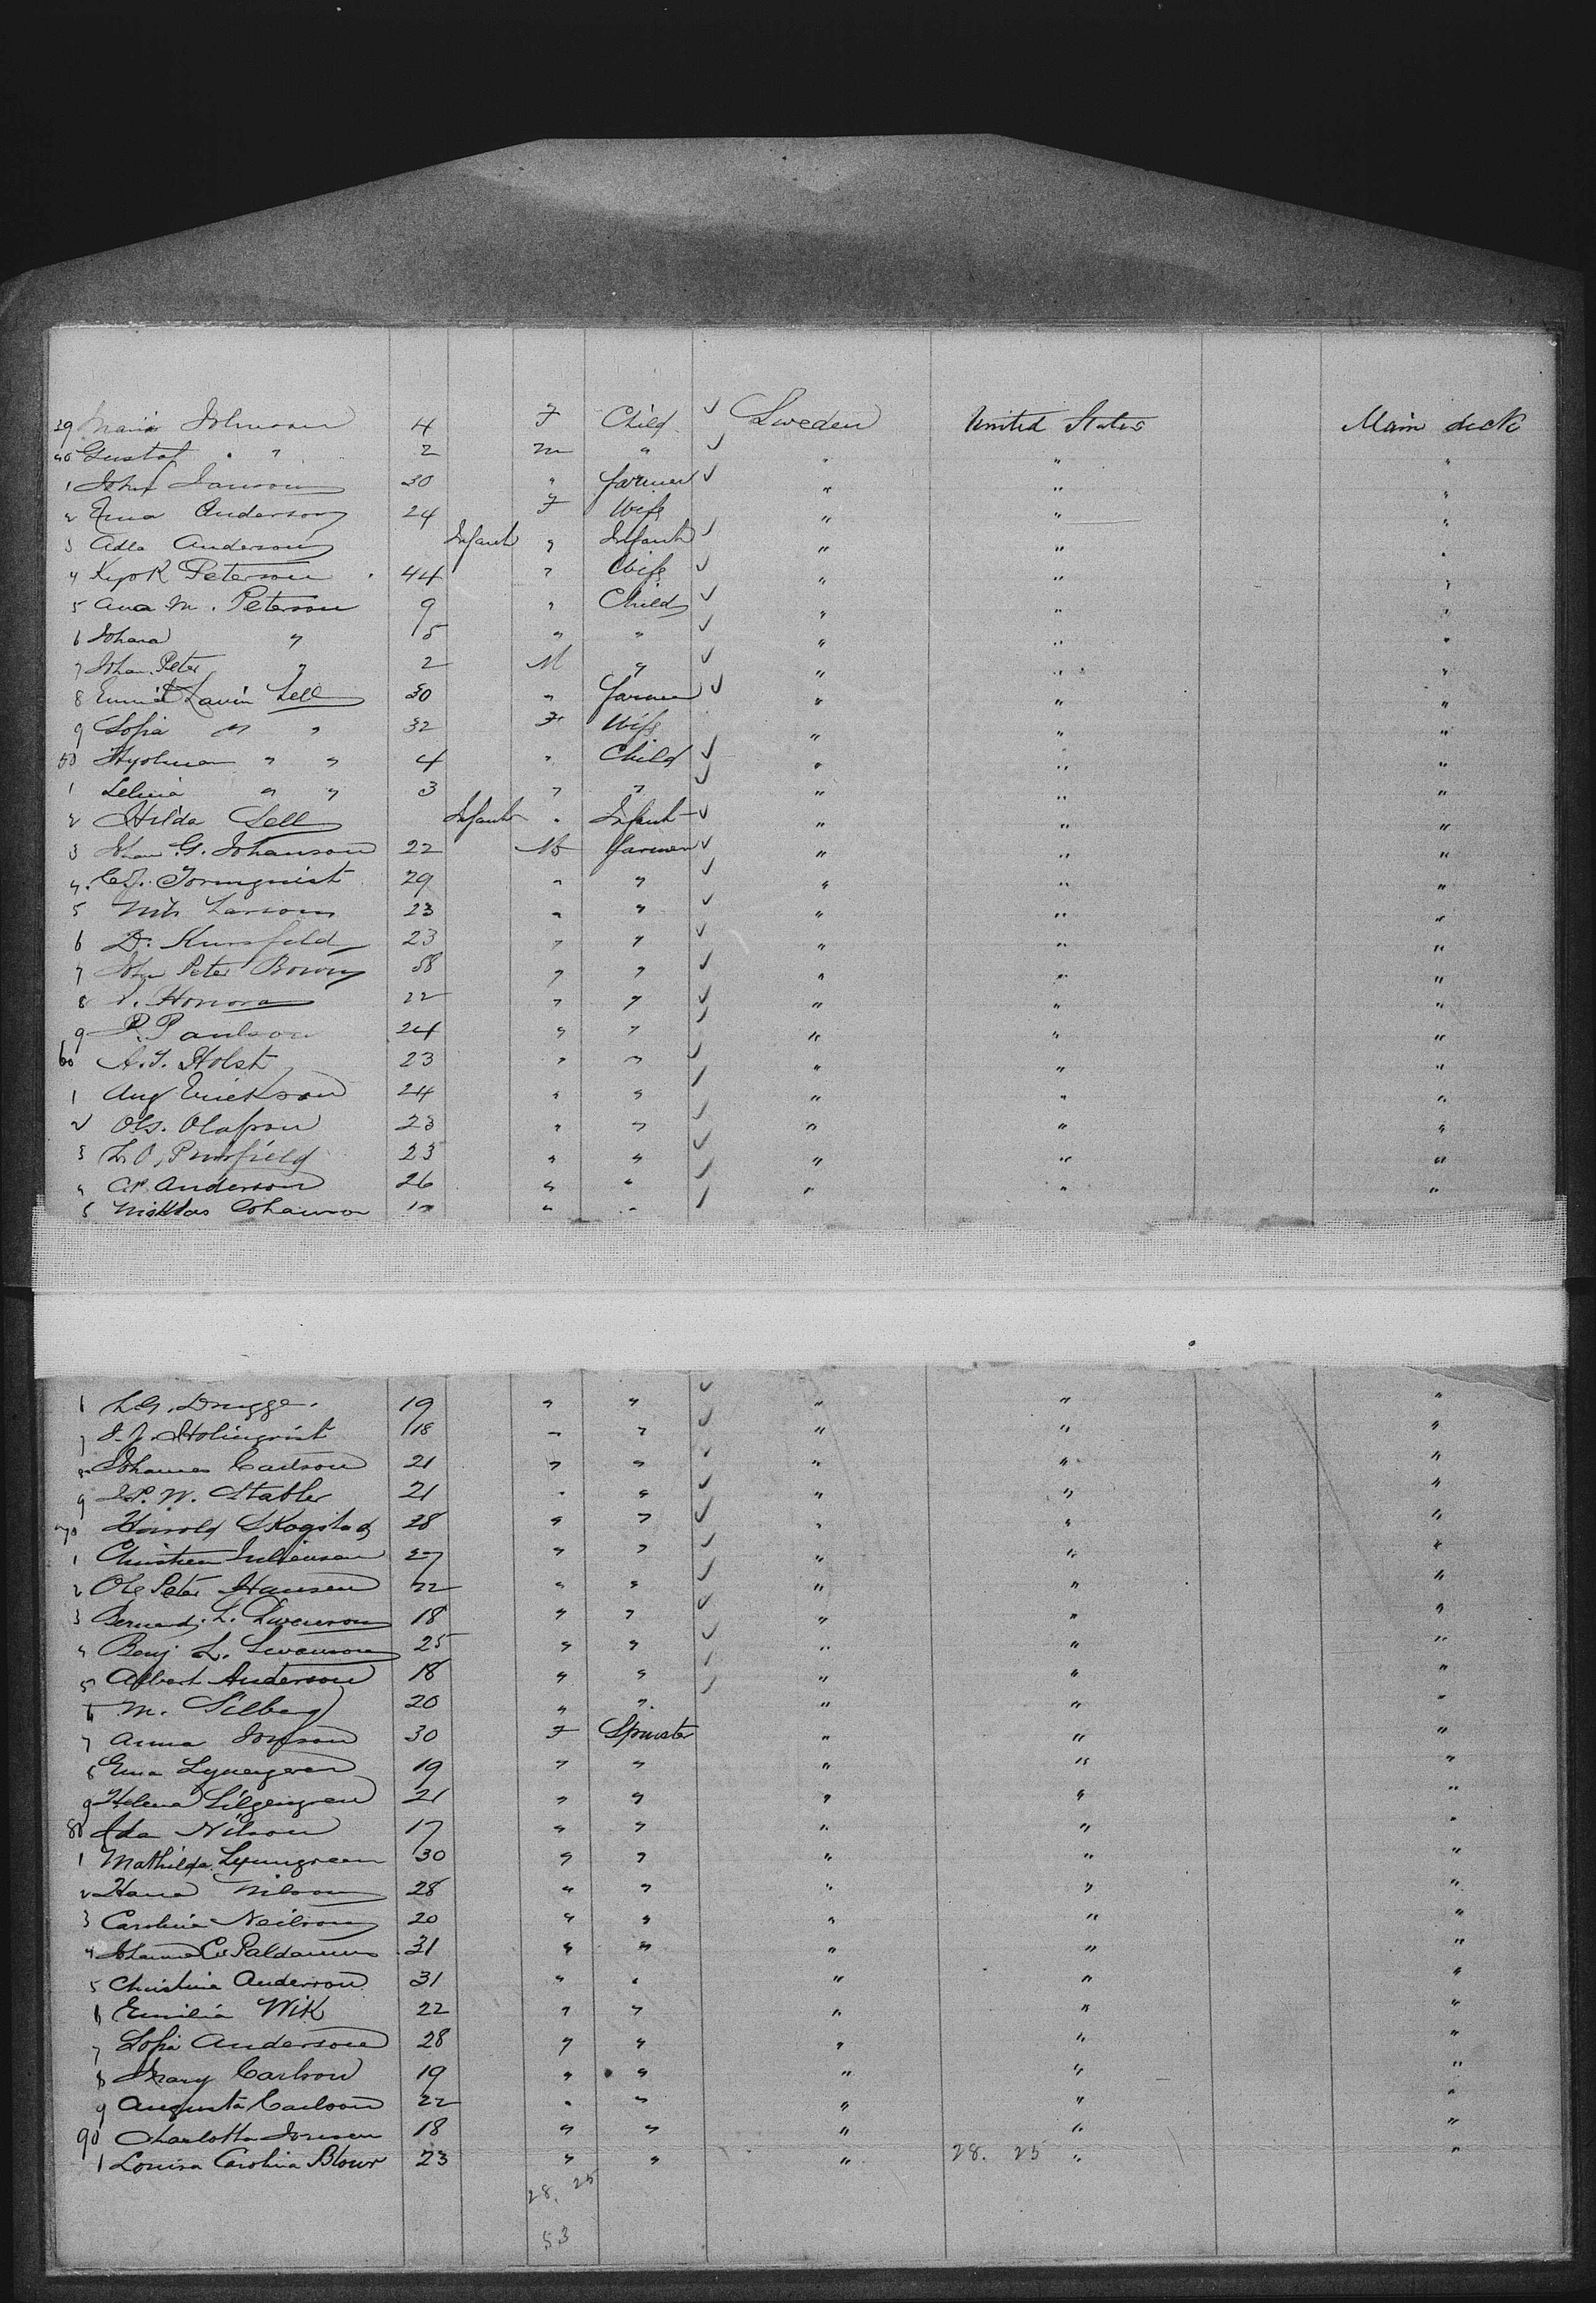 39 Maria Johnson 4 F Child ✓ Sweden United States Main deck
40 Gustaf " " 2 m " ✓ " " "
1 John 30 " farmer ✓ " " "
2 Ema Anderson 24 F Wife " " "
3 Adla Anderson Infant " Infant ✓ " " "
4 Peterson 44 " Wife ✓ " " "
5 Ana M. Peterson 9 " Child ✓ " " "
6 Johana " 5 " " ✓ " " "
7 Johan Peter " 2 M " ✓ " " "
8 Lavin Sell 30 " farmer ✓ " " "
9 Sofia " " 32 F Wife " " "
50 " " 4 " Child ✓ " " "
1 " " 3 " " ✓ " " "
2 Hilda Sell Infant " Infant ✓ " " "
3 Johan G. Johanson 22 M farmer ✓ " " "
4 C.J. Tornquist 29 " " ✓ " " "
5 Nils Larson 23 " " ✓ " " "
6 D. 23 " " ✓ " " "
7 John Peter 58 " " ✓ " " "
8 22 " " ✓ " " "
9 P. Paulson 24 " " ✓ " " "
60 A. J. Holst 23 " " ✓ " " "
1 Aug Erickson 24 " " ✓ " " "
2 Ols. Olafson 23 " " ✓ " " "
3 23 " " ✓ " " "
4 Anderson 26 " " ✓ " " "
5 Nicklas " " ✓
6 L.G. Drugge 19 " " ✓ " " "
7 Holmqvist 18 " " ✓ " " "
8 Johannes Carlson 21 " " ✓ " " "
9 J.P.W. Stabler 21 " " ✓ " " "
70 Harold Skogstad 28 " " ✓ " " "
1 Christian 27 " " ✓ " " "
2 Ole Peter Hansen 22 " " ✓ " " "
3 Bernard L. Swenson 18 " " ✓ " " "
4 Benj L. Swanson 25 " " ✓ " " "
5 Albert Anderson 18 " " ✓ " " "
6 M. Silberg 20 " " ✓ " " "
7 Anna 30 F Spinster " " "
8 Ema 19 " " " " "
9 Helena Liljengren 21 " " " " "
80 Ida Nilson 17 " " " " "
1 Mathilda Lyungreen 30 " " " " "
2 Hana Nilson 28 " " " " "
3 Carolina Neilson 20 " " " " "
4 Johanna C. 31 " " " " "
5 Christina Anderson 31 " " " " "
6 Emilia Wik 22 " " " " "
7 Sofia Anderson 28 " " " " "
8 Mary Carlson 19 " " " " "
9 Augusta Carlson 22 " " " " "
90 Charlotta Jonson 18 " " " " "
1 Louisa Carolina 23 " " " 28. 25 " "
28. 25
53